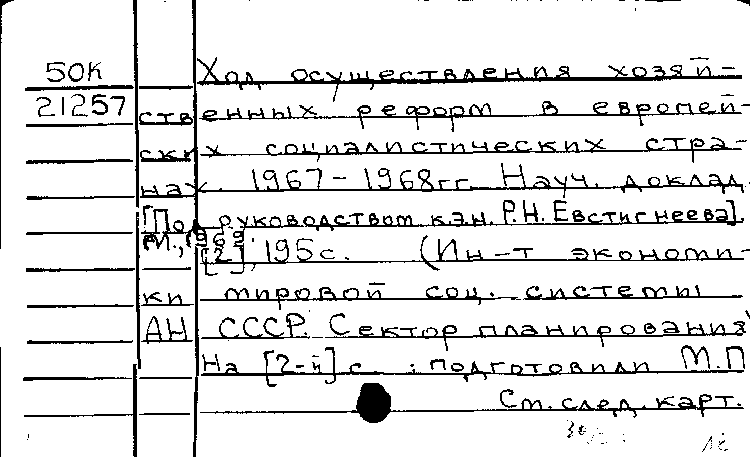 50К
21257
Ход осуществления хозяй-
ственных реформ в европей-
ских социалистических стра-
нах. 1967-1968гг. Науч. доклад.
[Под руководством к.э.н. Р.Н. Евстигнеева].
М., 1969
[2], 195с. (Ин-т экономи-
ки мировой соц. системы
АН СССР. Сектор планирования)
На [2-й] с.: подготовили М.П
См. след. карт.